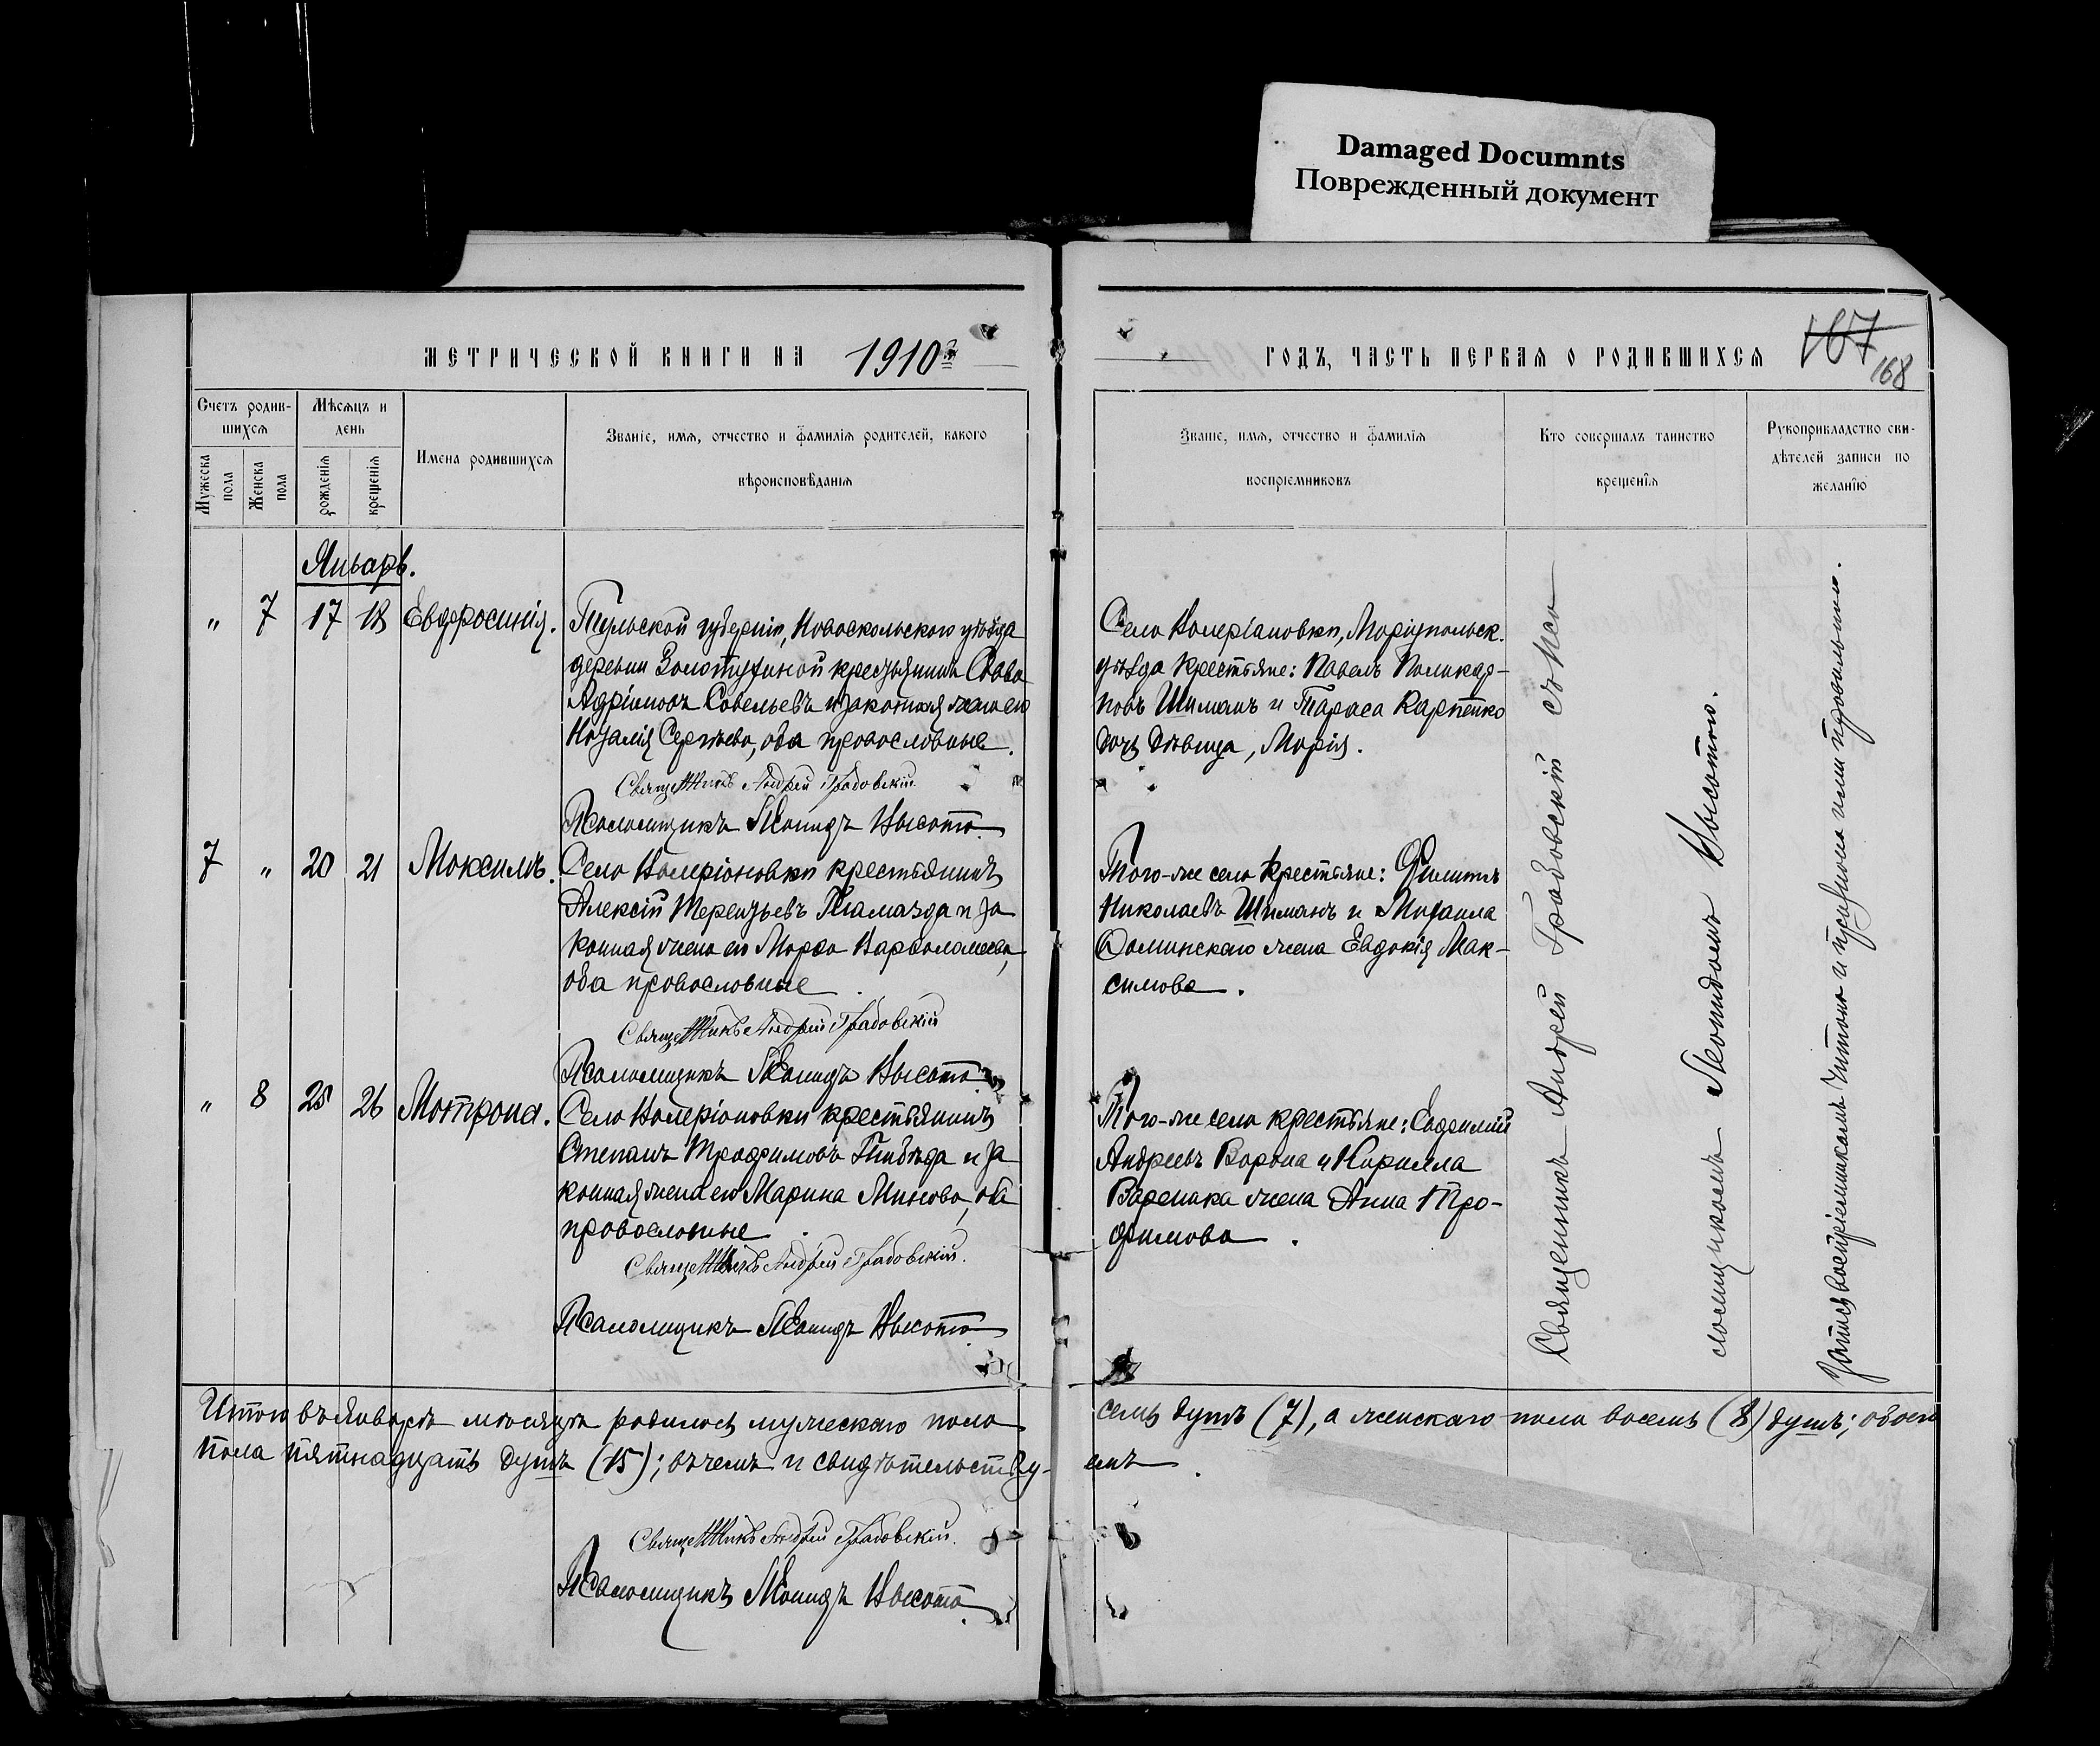 Damaged Documnts
Поврежденный документ
МЕТРИЧЕСКОЙ КНИГИ НА 1910 г.
Счетъ родив-
шихся
Мѣсяцъ и
день
Мужеска
пола
Женска
пола
рожденія
крещенія
Имена родившихся
Званіе, имя, отчество и фамилія родителей, какого
вѣроисповѣданія
Январь.
" 7 17 18 Евфросинія.
Тульской губерніи, Новоскольского уѣзда
деревни Золотухиной крестьянинъ Савва
Адріановъ Савельевъ и законная жена его
Наталія Сергѣева, оба православные.
Священникъ Андрей Градовскій.
Псаломщикъ Леонидъ Высота
7 " 20 21 Максимъ.
Села Валеріановки крестьянинъ
Алексій Терентьевъ Гламазда и за
конная жена его Марѳа Варѳоломеева,
оба православные
Священникъ Андрей Градовскій
Псаломщикъ Леонидъ Высота
" 8 25 26 Матрона.
Села Валеріановки крестьянинъ
Степанъ Трофимовъ и за
конная жена его Марина Минова, оба
православные
Священникъ Андрей Градовскій.
Псаломщикъ Леонидъ Высота
Итого въ Январѣ мѣсяцѣ родилось мужескаго пола
пола пятнадцать душъ (15); въ чемъ и свидѣтельству-
Священникъ Андрей Градовскій.
Псаломщикъ Леонидъ Высота
ГОДЪ, ЧАСТЬ ПЕРВАЯ О РОДИВШИХСЯ
167
168
Званіе, имя, отчество и фамилія
воспріемниковъ
Кто совершалъ таинство
крещенія
Рукоприкладство сви-
дѣтелей записи по
желанію
Села Валеріановки, Маріупольск.
уѣзда крестьяне: Павелъ Поликар-
повъ Шиманъ и Тараса Карпенко
дочь дѣвица, Марія.
Того-же села крестьяне: Филиппъ
Николаевъ Шиманъ и Михаила
жена Евдокія Мак-
симова.
Того-же села крестьяне: Евфимій
Андреевъ Ворона и Кирилла
Вареника жена Анна Тро-
фимова.
Священникъ Андрей Градовскій съ пса-
ломщикомъ Леонидомъ Высотою.
Запись воспріемникамъ читана и признана ими правильною.
семь душъ (7), а женскаго пола восемь (8) душъ; обоего
емъ.